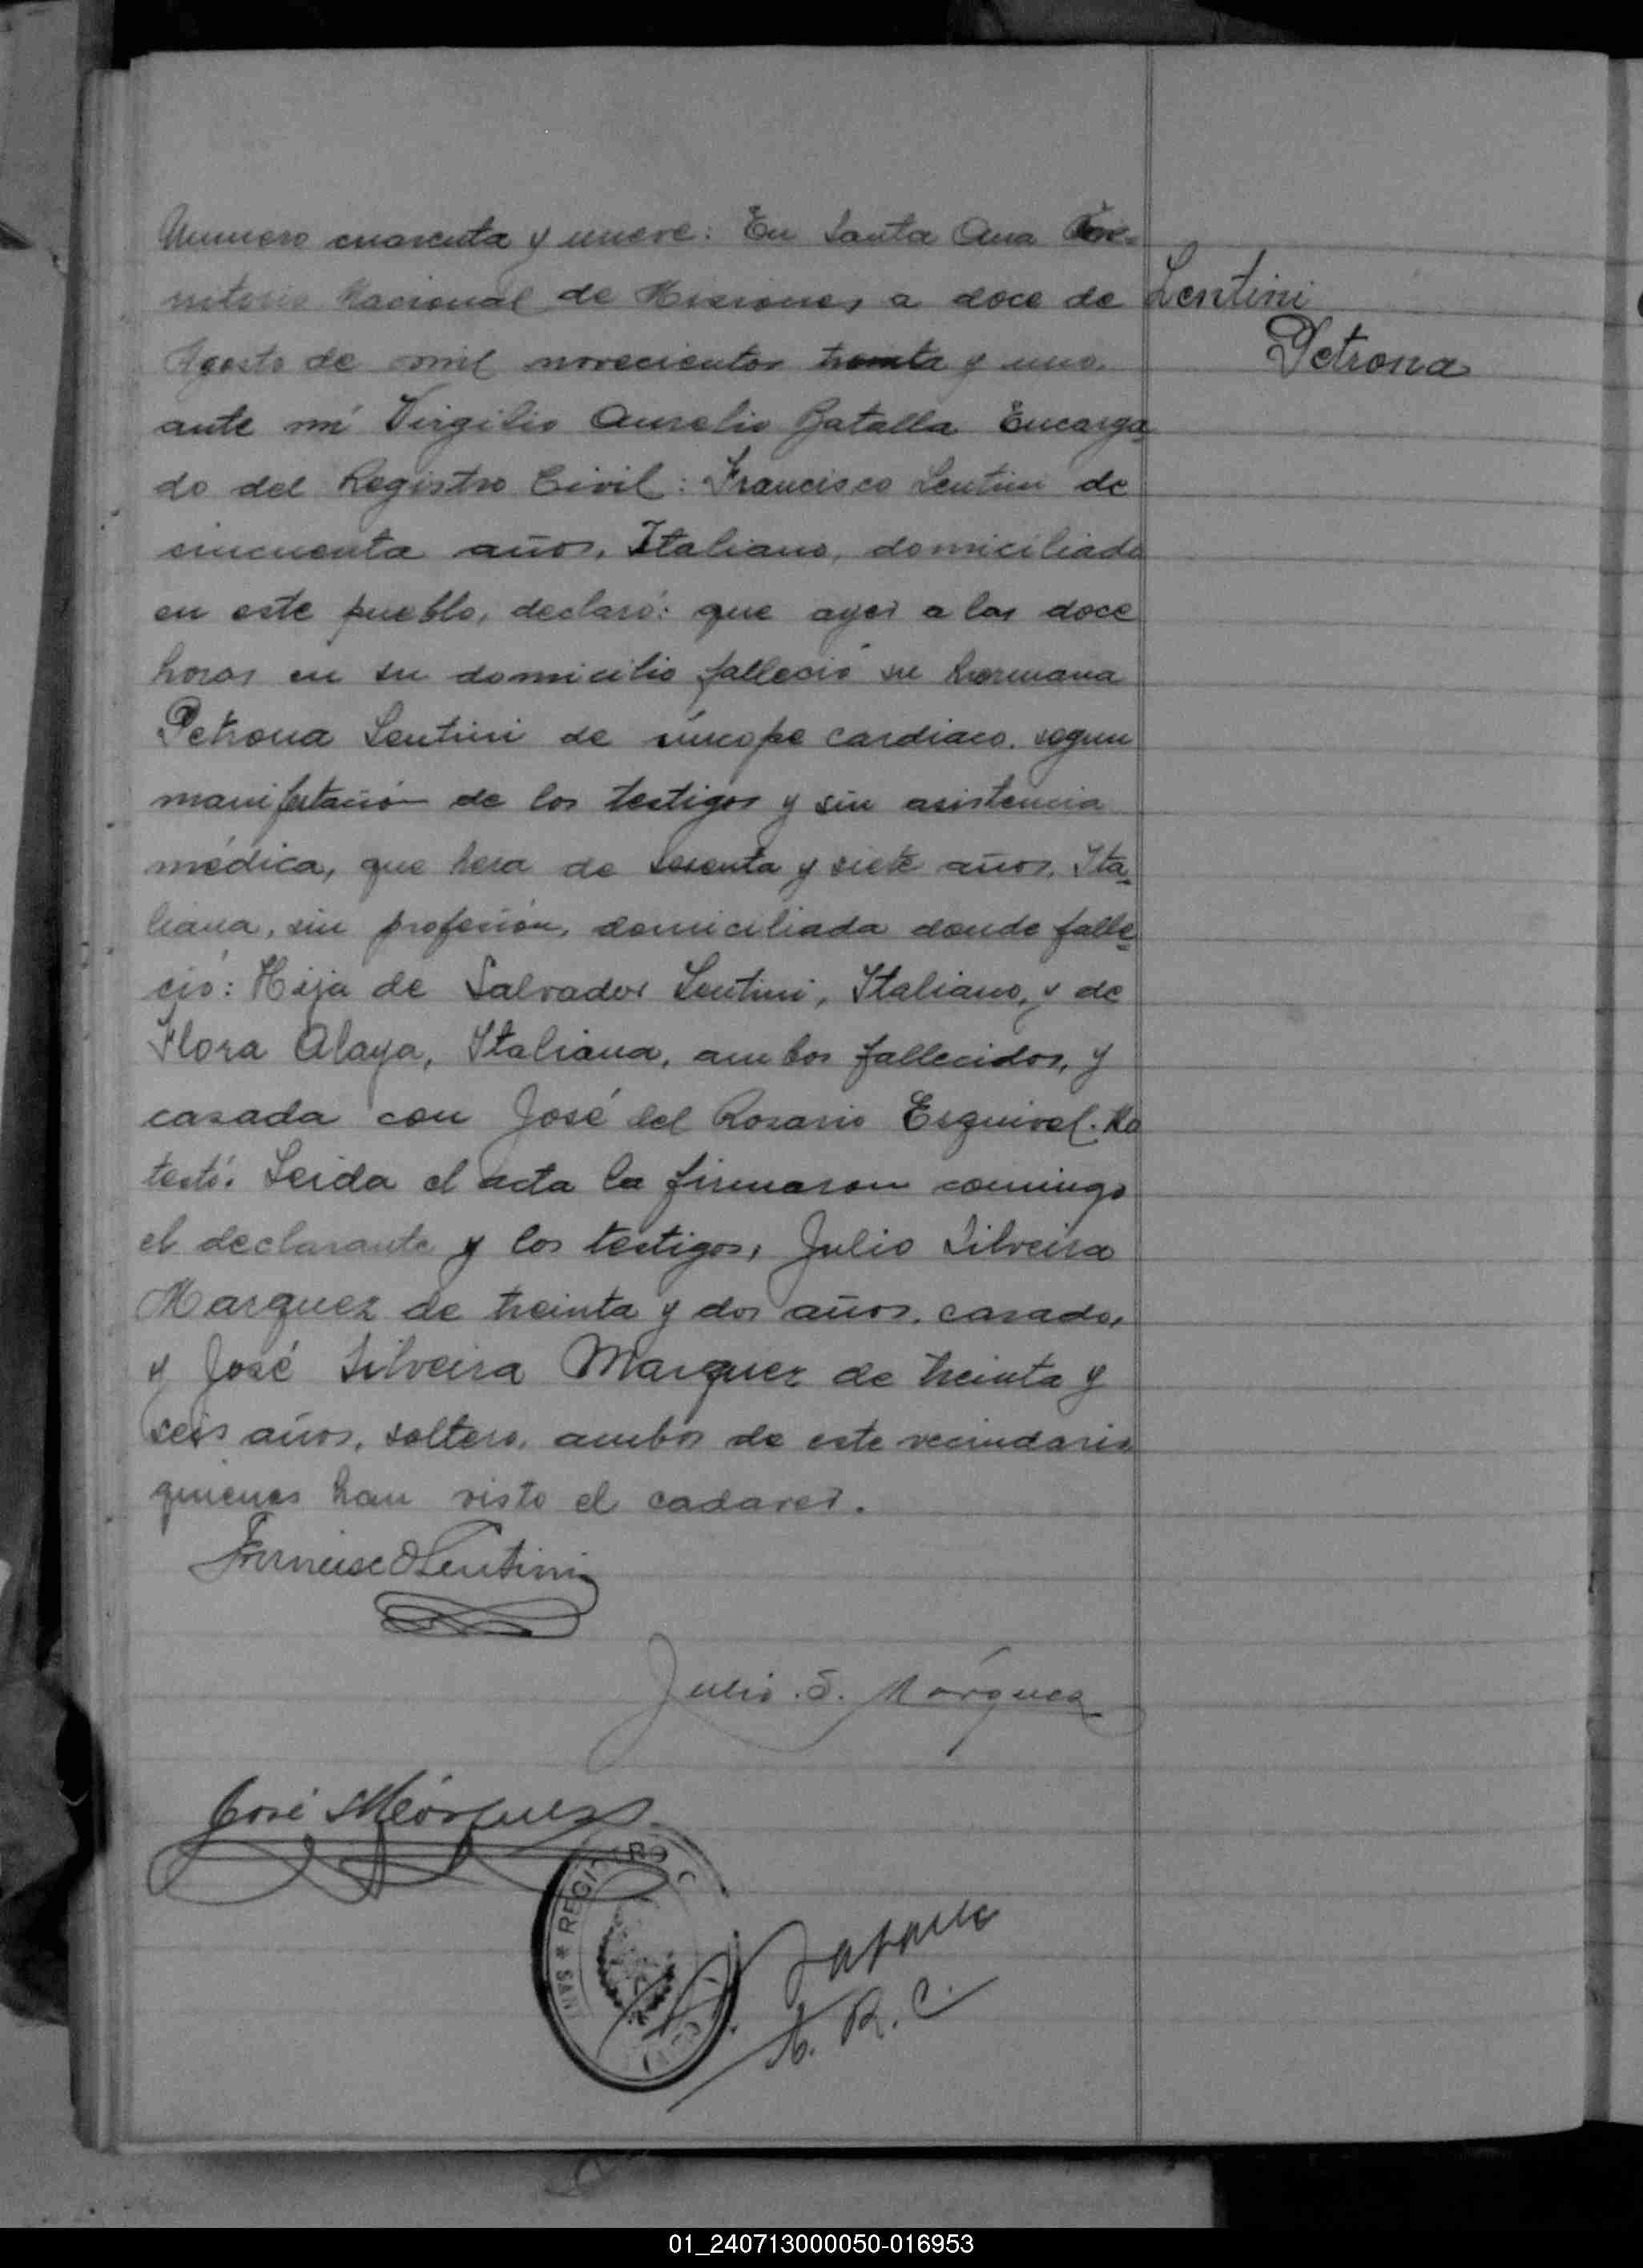 Numero cuarenta y nueve: En Santa Ana Te-
rritorio Nacional de Misiones a doce de
Agosto de mil novecientos treinta y uno,
ante mí Virgilio Aurelio Batalla Encarga
do del Registro Civil: Francisco Lentini de
cincuenta años, Italiano, domiciliado
en este pueblo, declaró: que ayer a las doce
horas en su domicilio falleció su hermana
Petrona Lentini de síncope cardiaco. segun
manifestación de los testigos y sin asistencia
médica, que hera de sesenta y siete años, Ita-
liana, sin profesión, domiciliada donde falle-
ció: Hija de Salvador Lentini, Italiano, y de
Flora Alaya, Italiana, ambos fallecidos, y
casada con José del Rosario Esquivel. No
testó. Leida el acta la firmaron conmigo
el declarante y los testigos, Julio Silveira
Marquez de treinta y dos años, casado,
y José Silveira Marquez de treinta y
seis años, soltero, ambos de este vecindario
quienes han visto el cadaver.
Lentini
Petrona
Francisco Lentini
Julio. S. Márquez
José Márquez
REGISTRO
Batalla
E. R. C.
01_240713000050-016953